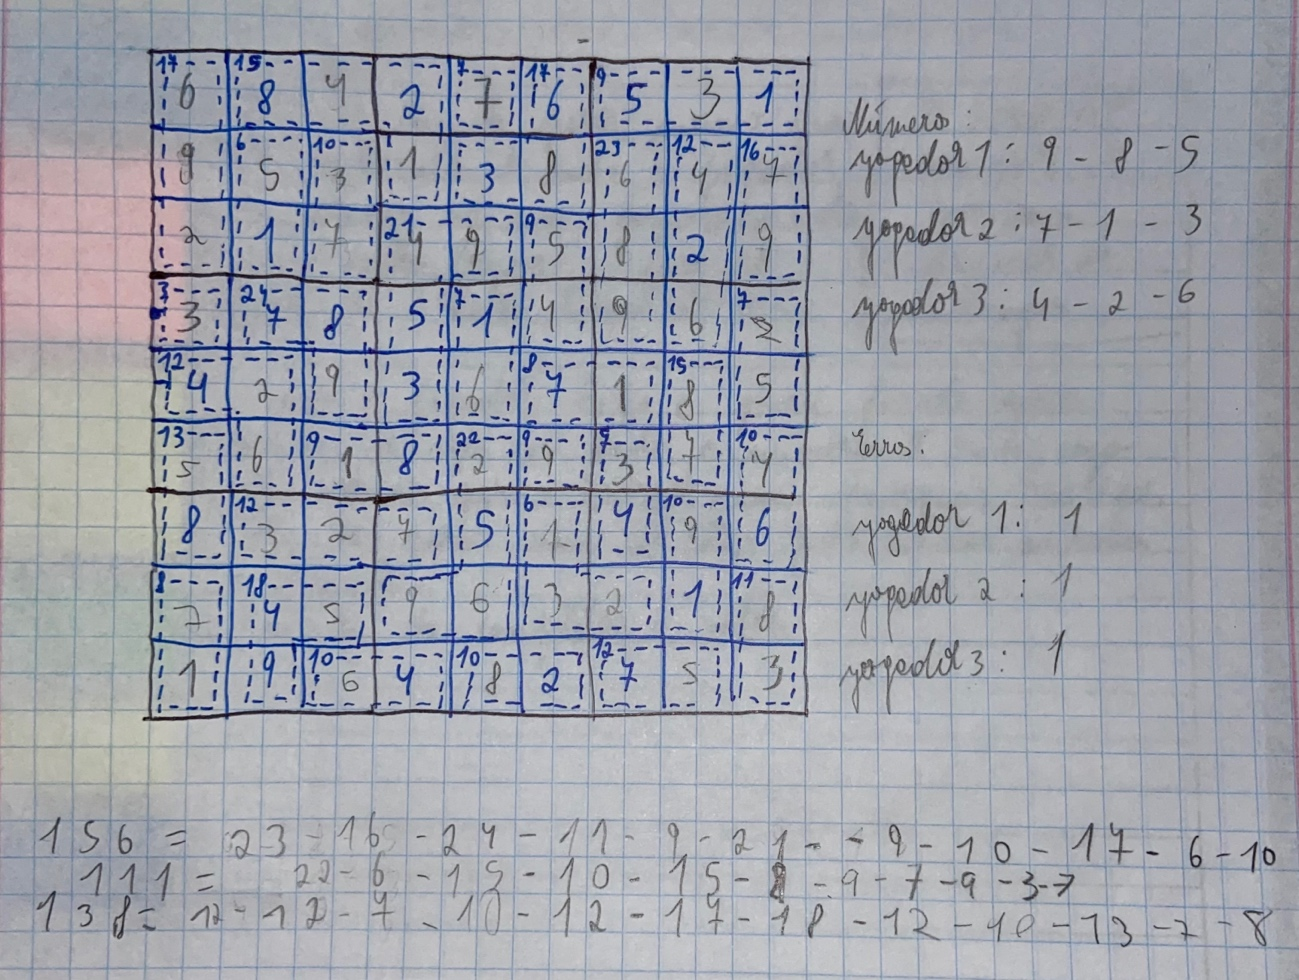 17 6 15 8 4 2 7 7 17 6 9 5 3 1
9 6 5 10 3 1 3 8 23 6 12 4 16 7
2 1 7 21 4 9 9 5 8 2 9
3 3 24 7 8 5 7 1 4 9 6 7 2
12 4 2 9 3 6 8 7 1 15 8 5
13 5 6 9 1 8 22 2 9 9 7 3 7 10 4
8 12 3 2 7 5 6 1 4 10 9 6
8 7 18 4 5 9 6 3 2 1 11 8
1 9 10 6 4 10 8 2 12 7 5 3
Número:
yogador 1: 9 - 8 - 5
yogador 2: 7 - 1 - 3
yogador 3: 4 - 2 - 6
Erros:
yogador 1: 1
yogador 2: 1
yogador 3: 1
156 = 23 - 16 - 24 - 11 - 9 - 21 - - 9 - 10 - 17 - 6 - 10
111 = 22 - 6 - 15 - 10 - 15 - - 9 - 7 - 9 - 3 - 7
138 = 12 - 12 - 7 - 10 - 12 - 17 - 18 - 12 - 10 - 13 - 7 - 8